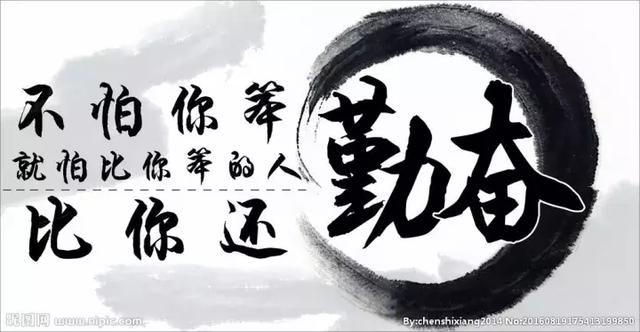 不怕你笨
就怕比你笨的人
比你还
勤奋
昵图网
www.nipic.com
By:chenshixiang2014 No:20160819175413199850